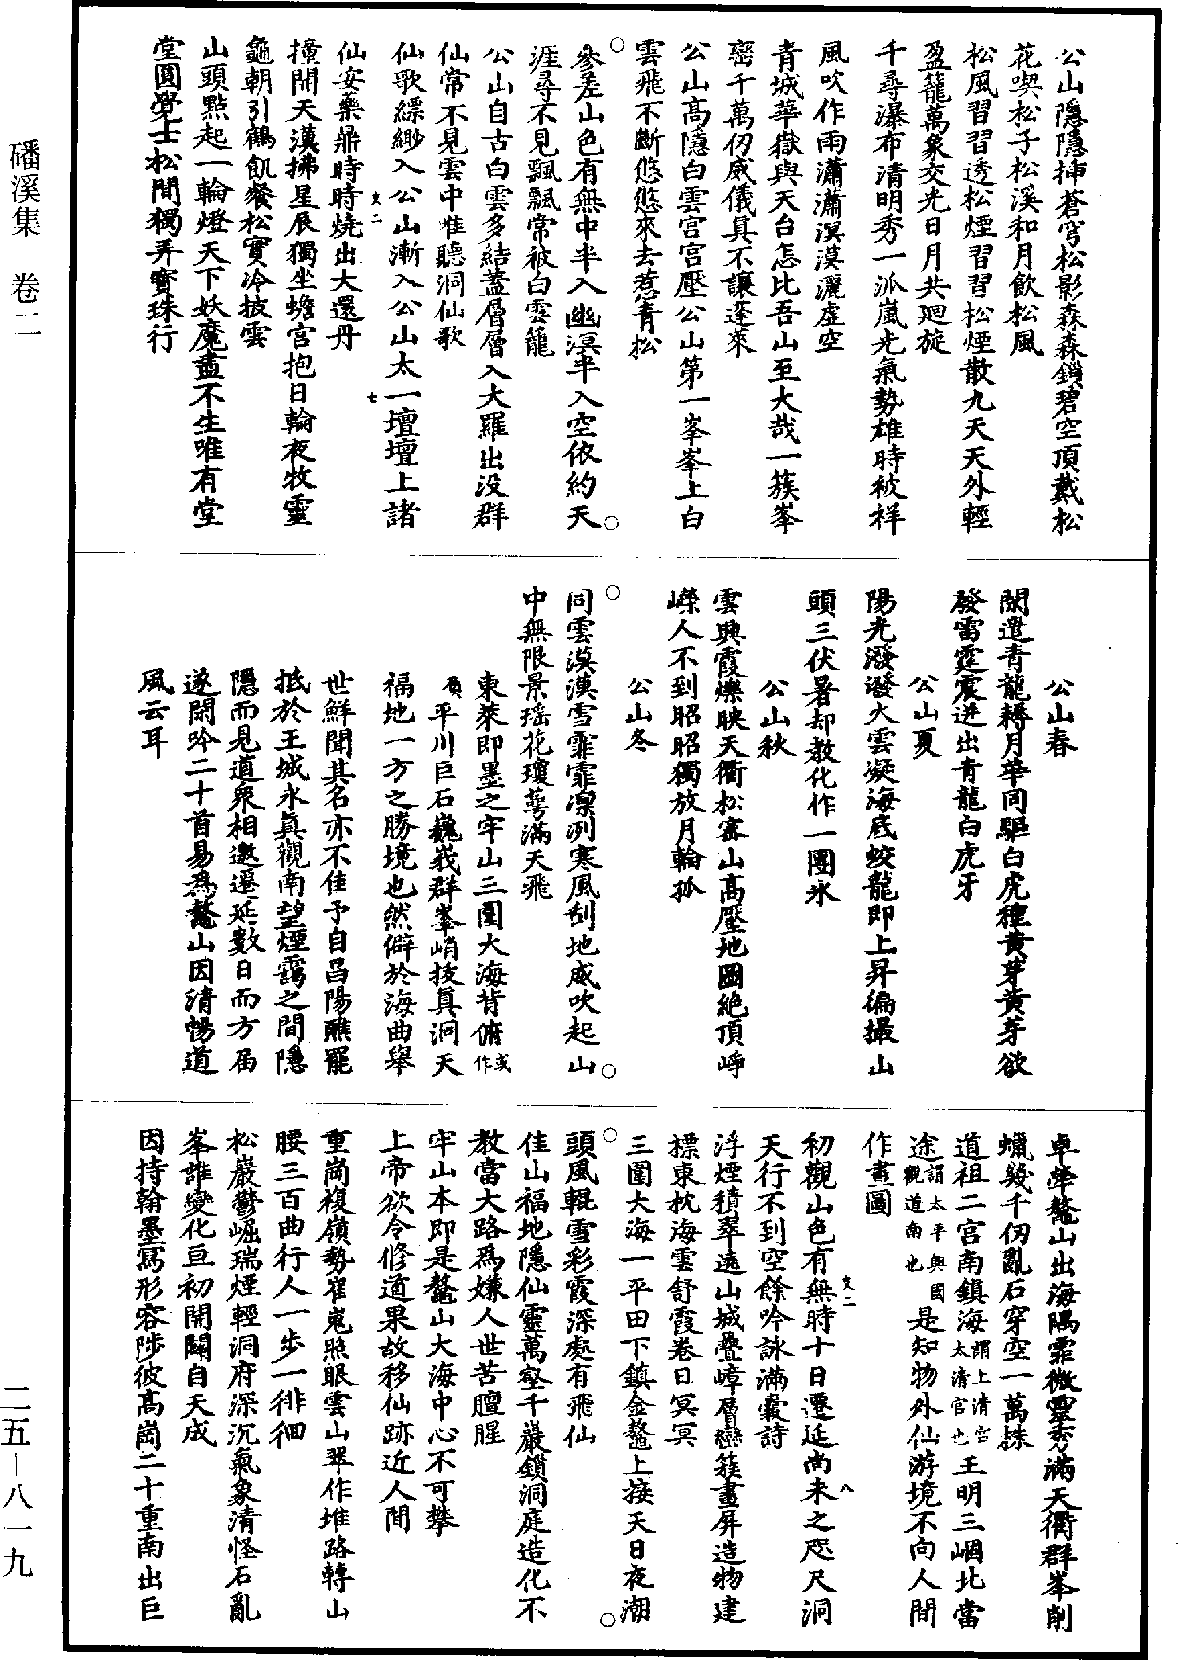 公山隱隱插蒼穹松影森森鎖碧空頂戴松
花喫松子松溪和月飲松風
松風習習透松煙習習松煙散九天天外輕
盈籠萬象交光日月共廻旋
千尋瀑布清明秀一派嵐光氣勢雄時被祥
風吹作雨瀟瀟溟漠灑虛空
青城華嶽與天台怎比吾山至大哉一簇峯
巒千萬仞威儀具不讓蓬萊
公山高隱白雲宫宫壓公山第一峯峯上白
雲飛不斷悠悠來去惹青松
參差山色有無中半入幽溟半入空依約天
涯尋不見飄飄常被白雲籠
公山自古白雲多結蓋層層入大羅出没群
仙常不見雲中惟聽洞仙歌
仙歌縹緲入公山漸入公山太一壇壇上諸
仙安樂鼎時時燒出大還丹
撞開天漢拂星辰獨坐蟾宫抱日輪夜牧靈
龜朝引鶴飢餐松實冷披雲
山頭點起一輪燈天下妖魔盡不生唯有堂
堂圓覺士松間獨弄寶珠行
支二
七
公山春
閑遣青龍耨月華同驅白虎種黄芽黄芽欲
發雷霆震迸出青龍白虎牙
公山夏
陽光潑潑大雲凝海底蛟龍即上昇徧撮山
頭三伏暑却教化作一團氷
公山秋
雲興霞爍映天衢松寒山高壓地圖絶頂崢
嶸人不到昭昭獨放月輪孤
公山冬
同雲漠漠雪霏霏凜冽寒風刮地威吹起山
中無限景瑶花瓊蕚滿天飛
東萊即墨之牢山三圍大海背俯或作
負平川巨石巍峩群峯峭拔真洞天
福地一方之勝境也然僻於海曲舉
世鮮聞其名亦不佳予自昌陽醮罷
抵於王城永真觀南望煙靄之間隱
隱而見道衆相邀遷延數日而方届
遂閑吟二十首易爲鼇山因清暢道
風云耳
卓犖鼇山出海隅霏微靈秀滿天衢群峯削
蠟幾千仞亂石穿空一萬株
道祖二宫南鎮海謂上清宫太清宫也王明三崓北當
途謂太平興國觀道南也是知物外仙游境不向人間
作畫圖
初觀山色有無時十日遷延尚未之咫尺洞
天行不到空餘吟詠滿囊詩
浮煙積翠遶山城疊嶂層巒簇畫屏造物建
標東枕海雲舒霞卷日冥冥
三圍大海一平田下鎮金鼇上接天日夜潮
頭風輥雪彩霞深處有飛仙
佳山福地隱仙靈萬壑千巖鎖洞庭造化不
教當大路爲嫌人世苦膻腥
牢山本即是鼇山大海中心不可攀
上帝欲令修道果故移仙跡近人間
重崗複嶺勢崔嵬照眼雲山翠作堆路轉山
腰三百曲行人一步一徘徊
松巖鬱崛瑞煙輕洞府深沉氣象清怪石亂
峯誰變化亘初開闢自天成
因持翰墨寫形容陟彼高崗二十重南出巨
支二
八
磻溪集 卷二
二五—八一九